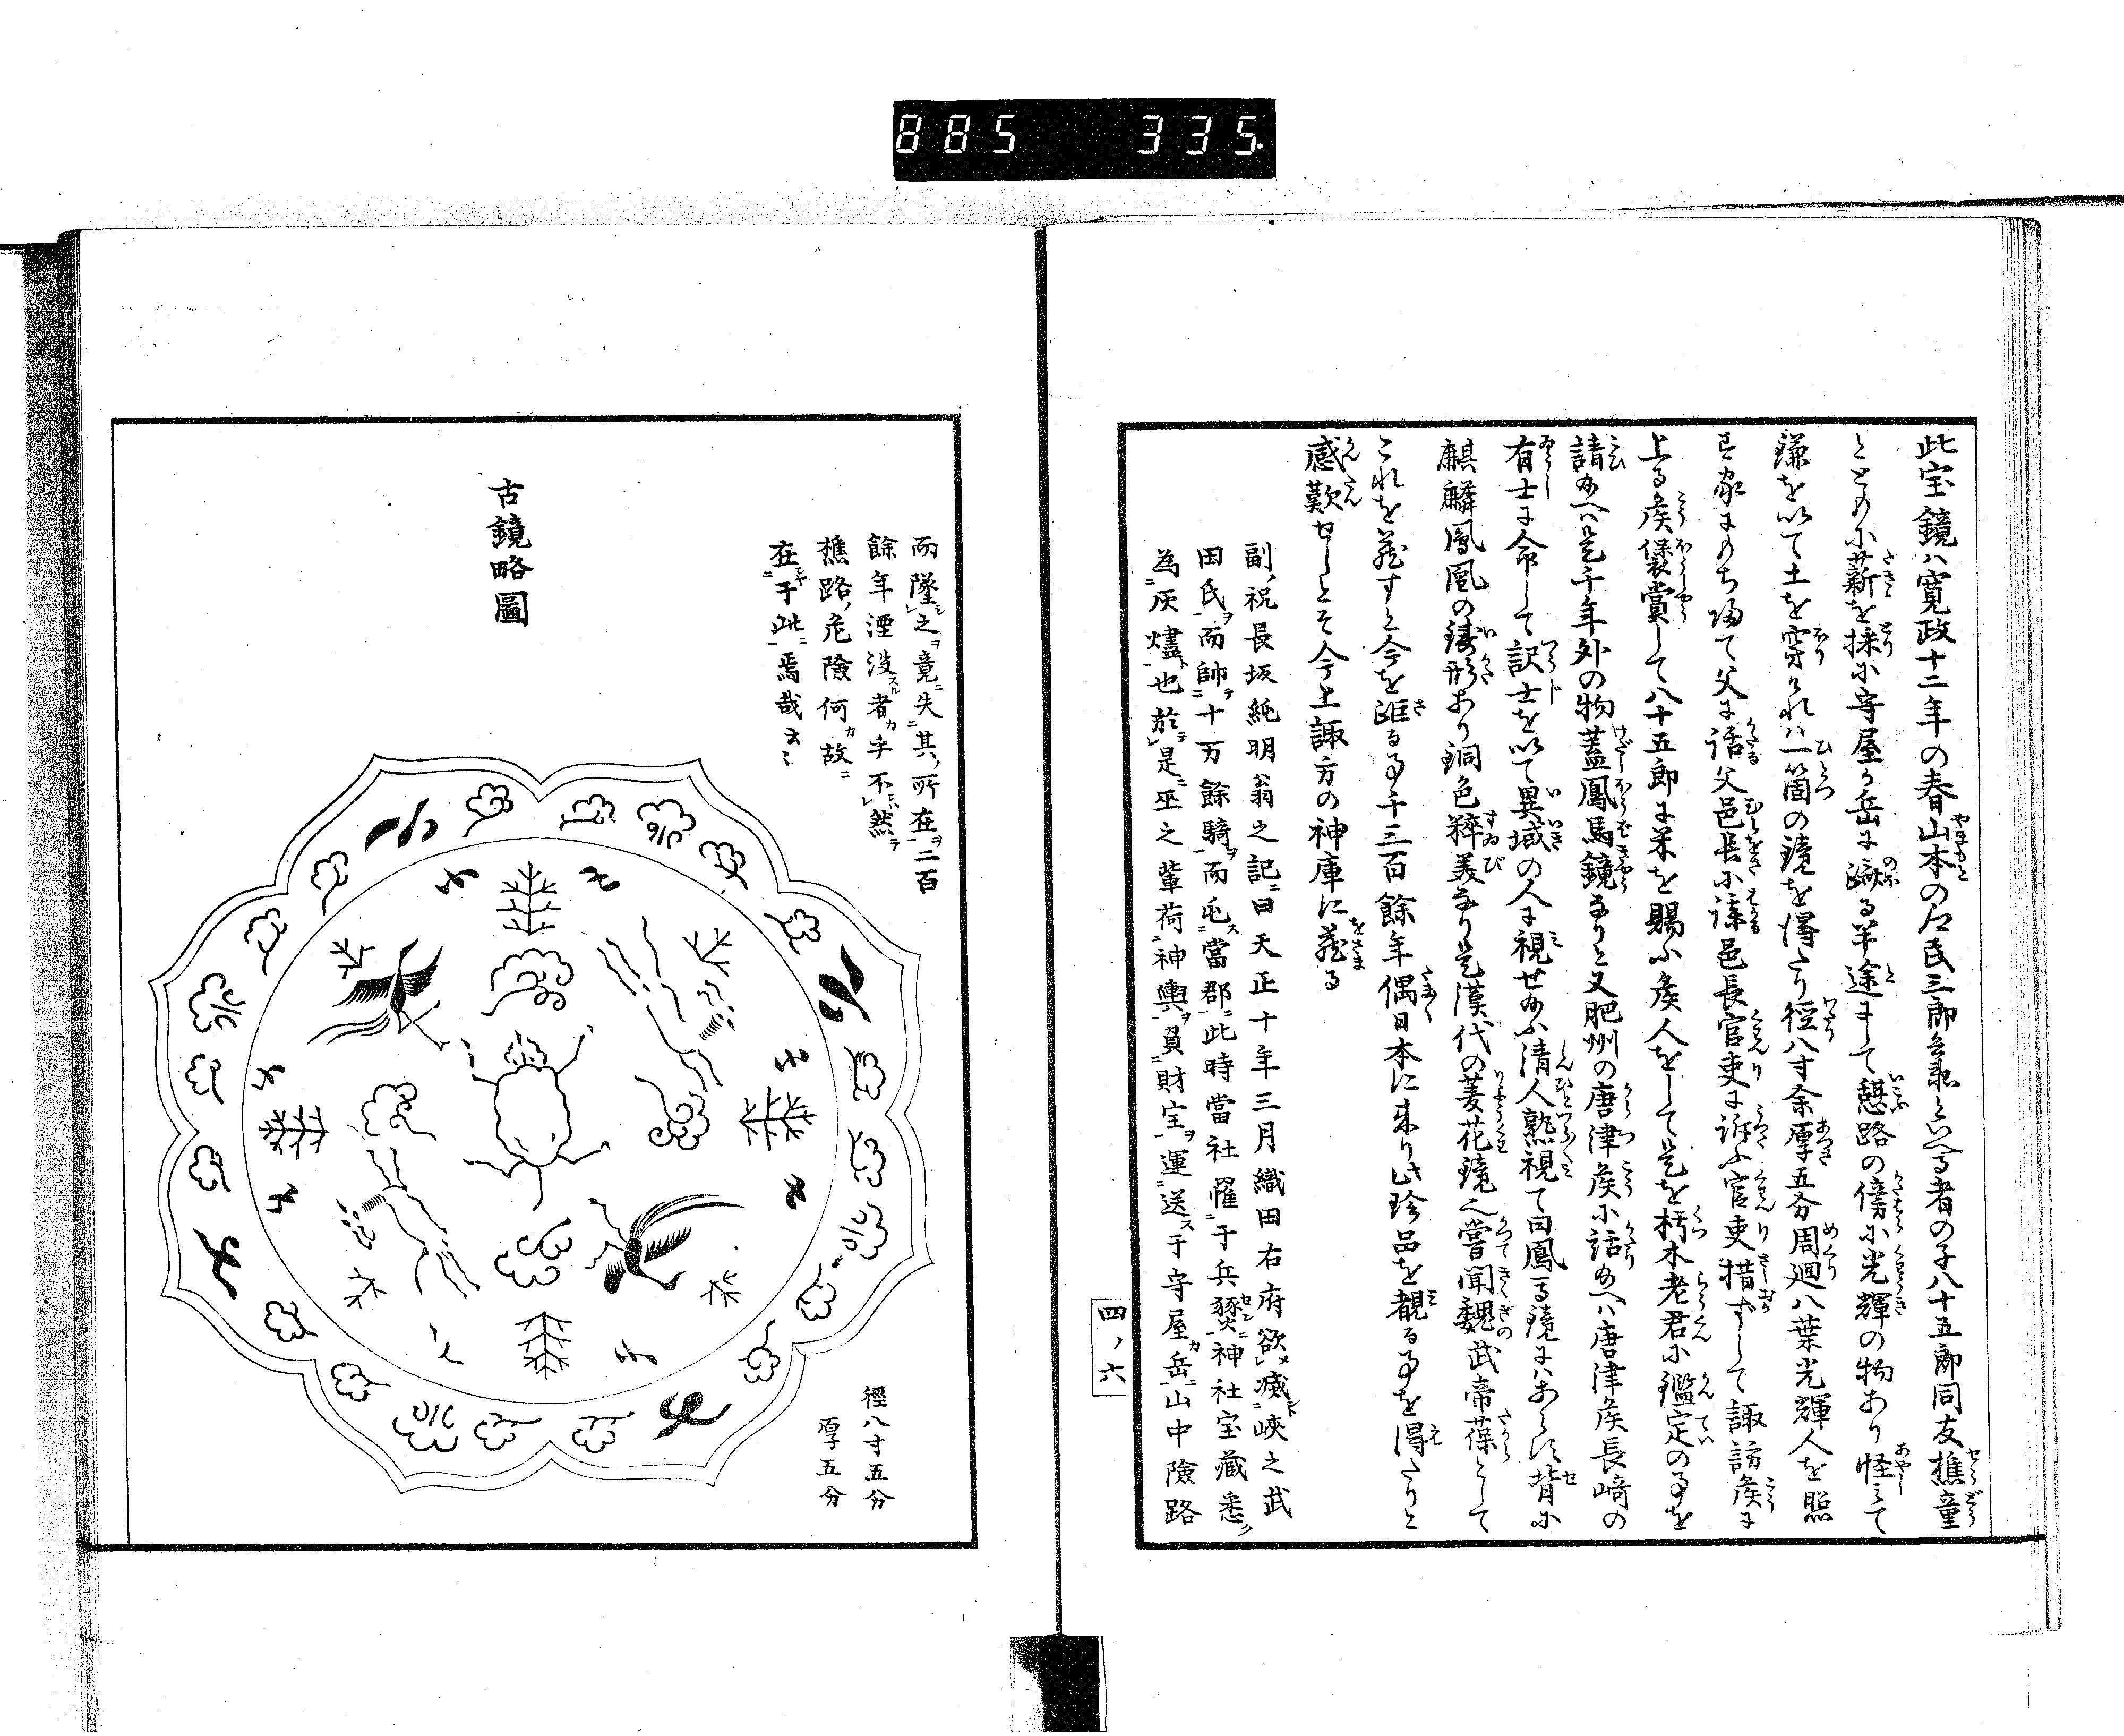 885 335.
此宝鏡ハ寛政十二年の春山本の石民三郎兵衛といへる者の子八十五郎同友樵童
とともに薪を採に守屋ヶ岳に躋る半途にして憩路の傍に光輝の物あり怪みて
鎌を以て土を穿けれハ一箇の鏡を得たり径八寸余厚五分周廻八葉光輝人を照
す家にもち帰て父に話父邑長に謀邑長官吏に訴ふ官吏措すして諏訪侯に
上る侯褒賞して八十五郎に米を賜ふ侯人をして是を朽木老君に鑑定の事を
請給へハ是千年外の物蓋鳳馬鏡なりと又肥州の唐津侯に話給へハ唐津侯長崎の
有士に命して訳士を以て異域の人に視せ給ふ清人熟視て曰鳳馬鏡にハあらす背に
麒麟鳳凰の鋳形あり銅色粹美なり是漢代の菱花鏡也嘗聞魏武帝葆として
これを蔵すと今を距る事千三百餘年偶日本に来り此珍品を観る事を得たりと
感歎せしとそ今上諏方の神庫に蔵る
副ノ祝長坂純明翁之記ニ曰天正十年三月織田右府欲メレ滅ント二峽之武
田氏ヲ一而帥テ二十万餘騎ヲ一而屯ス二當郡ニ一此時當社罹二于兵燹ニ一神社宝蔵悉ク
為ト二灰燼一也於テレ是ニ巫之輩荷二神輿ヲ一負二財宝ヲ一運二送ス于守屋カ岳ニ一山中險路
四ノ六
而墜シレ之ヲ竟ニ失二其ノ所在ヲ一二百
餘年湮没スル者カ乎不レハ然ラ
樵路ノ危險何カ故ニ
在ンヤ二于此ニ一焉哉云〻
古鏡略圖
徑八寸五分
厚五分